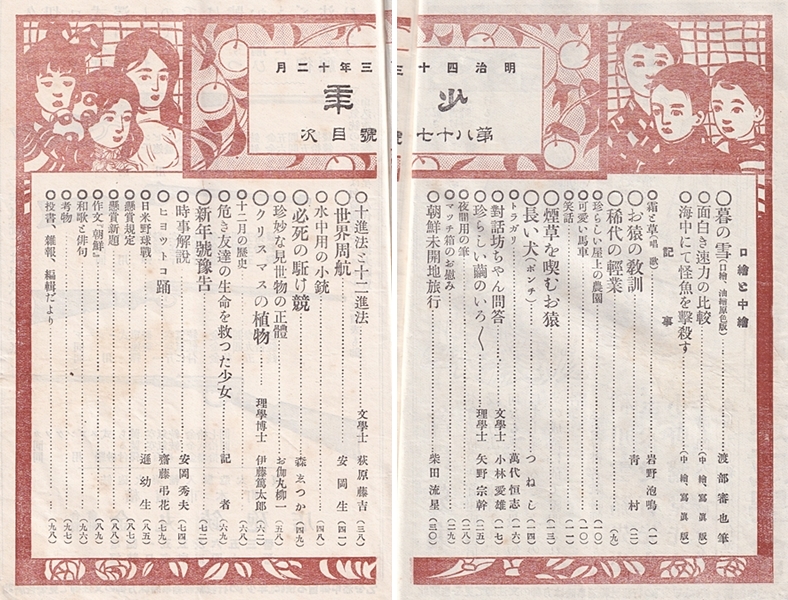 明治四十三年十二月
少年
第八十七號目次
口繪と中繪
暮の雪(口繪、油繪原色版)……渡部審也筆
面白き速力の比較……(中繪寫眞版)
海中にて怪魚を擊殺す……(中繪寫眞版)
記事
霜と草(唱歌)……岩野泡鳴(一)
お猿の教訓……青村(二)
稀代の輕業……(九)
珍らしい屋上の農園……(一〇)
可愛い馬車……(一〇)
笑話……(一一)
煙草を喫むお猿……(一三)
長い犬(ポンチ)……つねし(一四)
トラガリ……萬代恒志(一六)
對話坊ちやん問答……文學士 小林愛雄(一七)
珍らしい繭のいろ〱……理學士 矢野宗幹(二一)
夜間用の筆……(二五)
マツチ箱のお慰み……(二九)
朝鮮未開地旅行……柴田流星(三〇)
十進法と十二進法……文學士 荻原藤吉(三八)
世界周航……安岡生(四一)
水中用の小銃……(四八)
必死の駈け競……森ゑつか(四九)
珍妙な見世物の正體……お伽丸柳一(五八)
クリスマスの植物……理學博士 伊藤篤太郎(六二)
十二月の歷史……(六八)
危き友達の生命を救つた少女……記者(六九)
新年號豫告……(七二)
時事解說……安岡秀夫(七四)
ヒヨツトコ踊……齋藤弔花(七九)
日米野球戰……遜幼生(八五)
懸賞規定……(八七)
懸賞新題……(八八)
作文『朝鮮』……(八九)
和歌と俳句……(九六)
考物……(九七)
投書、雜報、編輯だより……(九八)